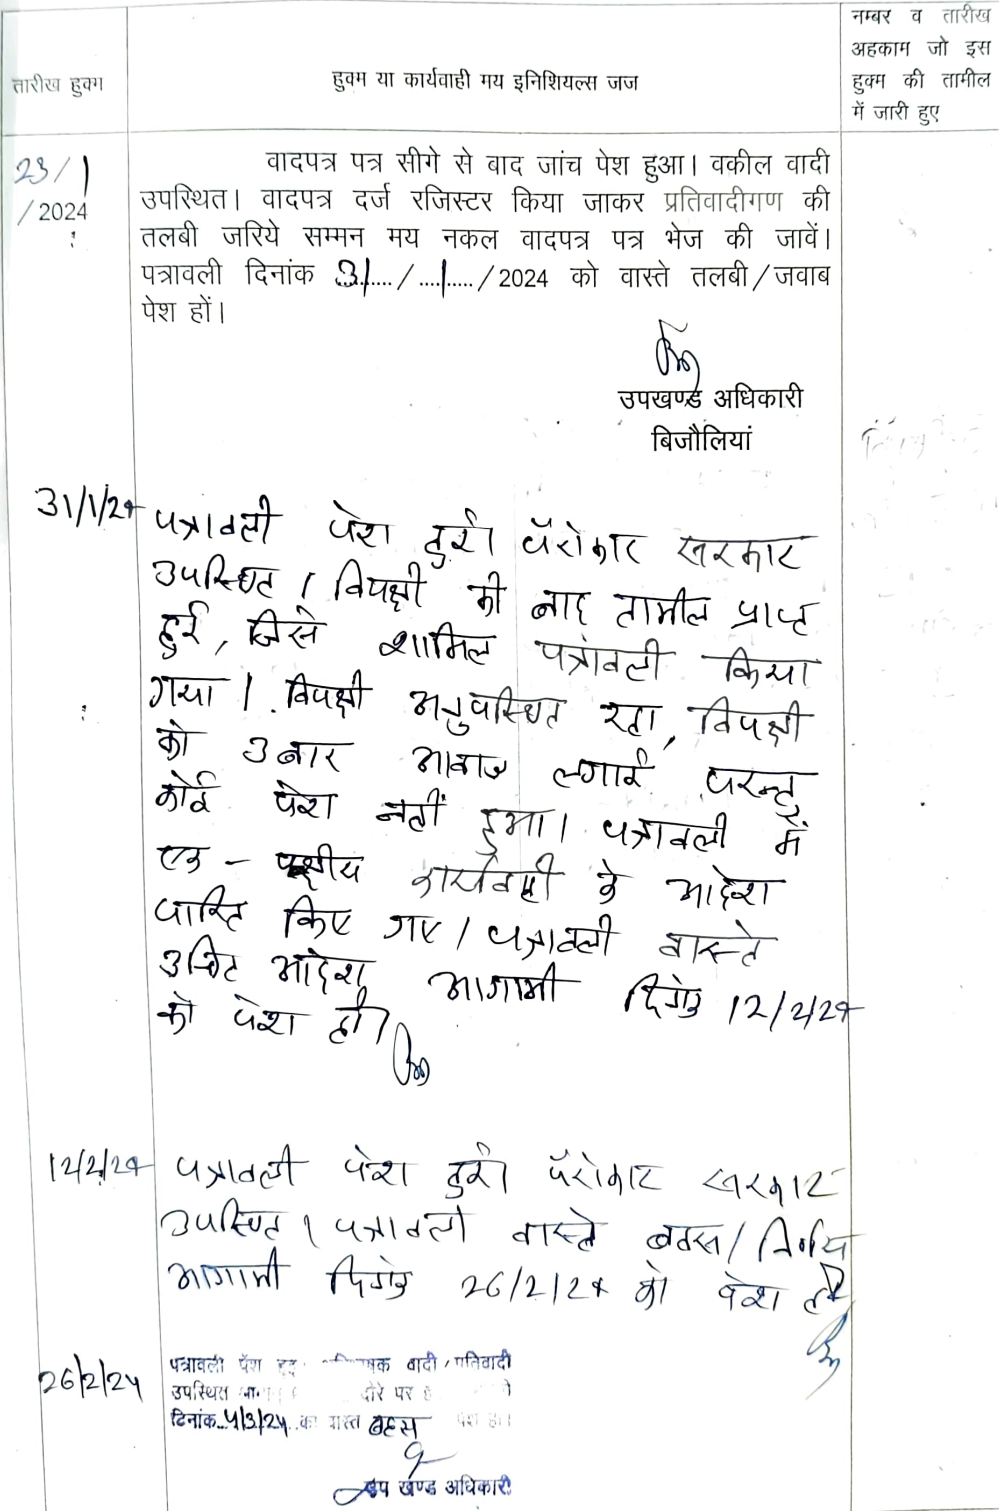 तारीख हुक्म
हुक्म या कार्यवाही मय इनिशियल्स जज
नम्बर व तारीख
अहकाम जो इस
हुक्म की तामील
में जारी हुए
23/1
/2024
वादपत्र पत्र सीगे से बाद जांच पेश हुआ। वकील वादी
उपस्थित। वादपत्र दर्ज रजिस्टर किया जाकर प्रतिवादीगण की
तलबी जरिये सम्मन मय नकल वादपत्र पत्र भेज की जावें।
पत्रावली दिनांक 31..../....1...../2024 को वास्ते तलबी/जवाब
पेश हों।
उपखण्ड अधिकारी
बिजौलियां
31/1/24
पत्रावली पेश हुई। पॅरोकार सरकार
उपस्थित। विपक्षी की बाद तामील प्राप्त
हुई, जिसे शामिल पत्रावली किया
गया। विपक्षी अनुपस्थित रहा, विपक्षी
को 3 बार आवाज लगाई परन्तु
कोई पेश नहीं हुआ। पत्रावली में
एक-पक्षीय कार्यवाही के आदेश
पारित किए गए। पत्रावली वास्ते
उचित आदेश आगामी दिनांक 12/2/24
को पेश हो।
12/2/24
पत्रावली पेश हुई। पॅरोकार सरकार
उपस्थित। पत्रावली वास्ते बहस/निर्णय
आगामी दिनांक 26/2/24 को पेश हो
26/2/24
पत्रावली पेश हुई वादी/प्रतिवादी
उपस्थित दौरे पर
दिनांक..4/3/24..को वास्ते बहस पेश हो।
उप खण्ड अधिकारी